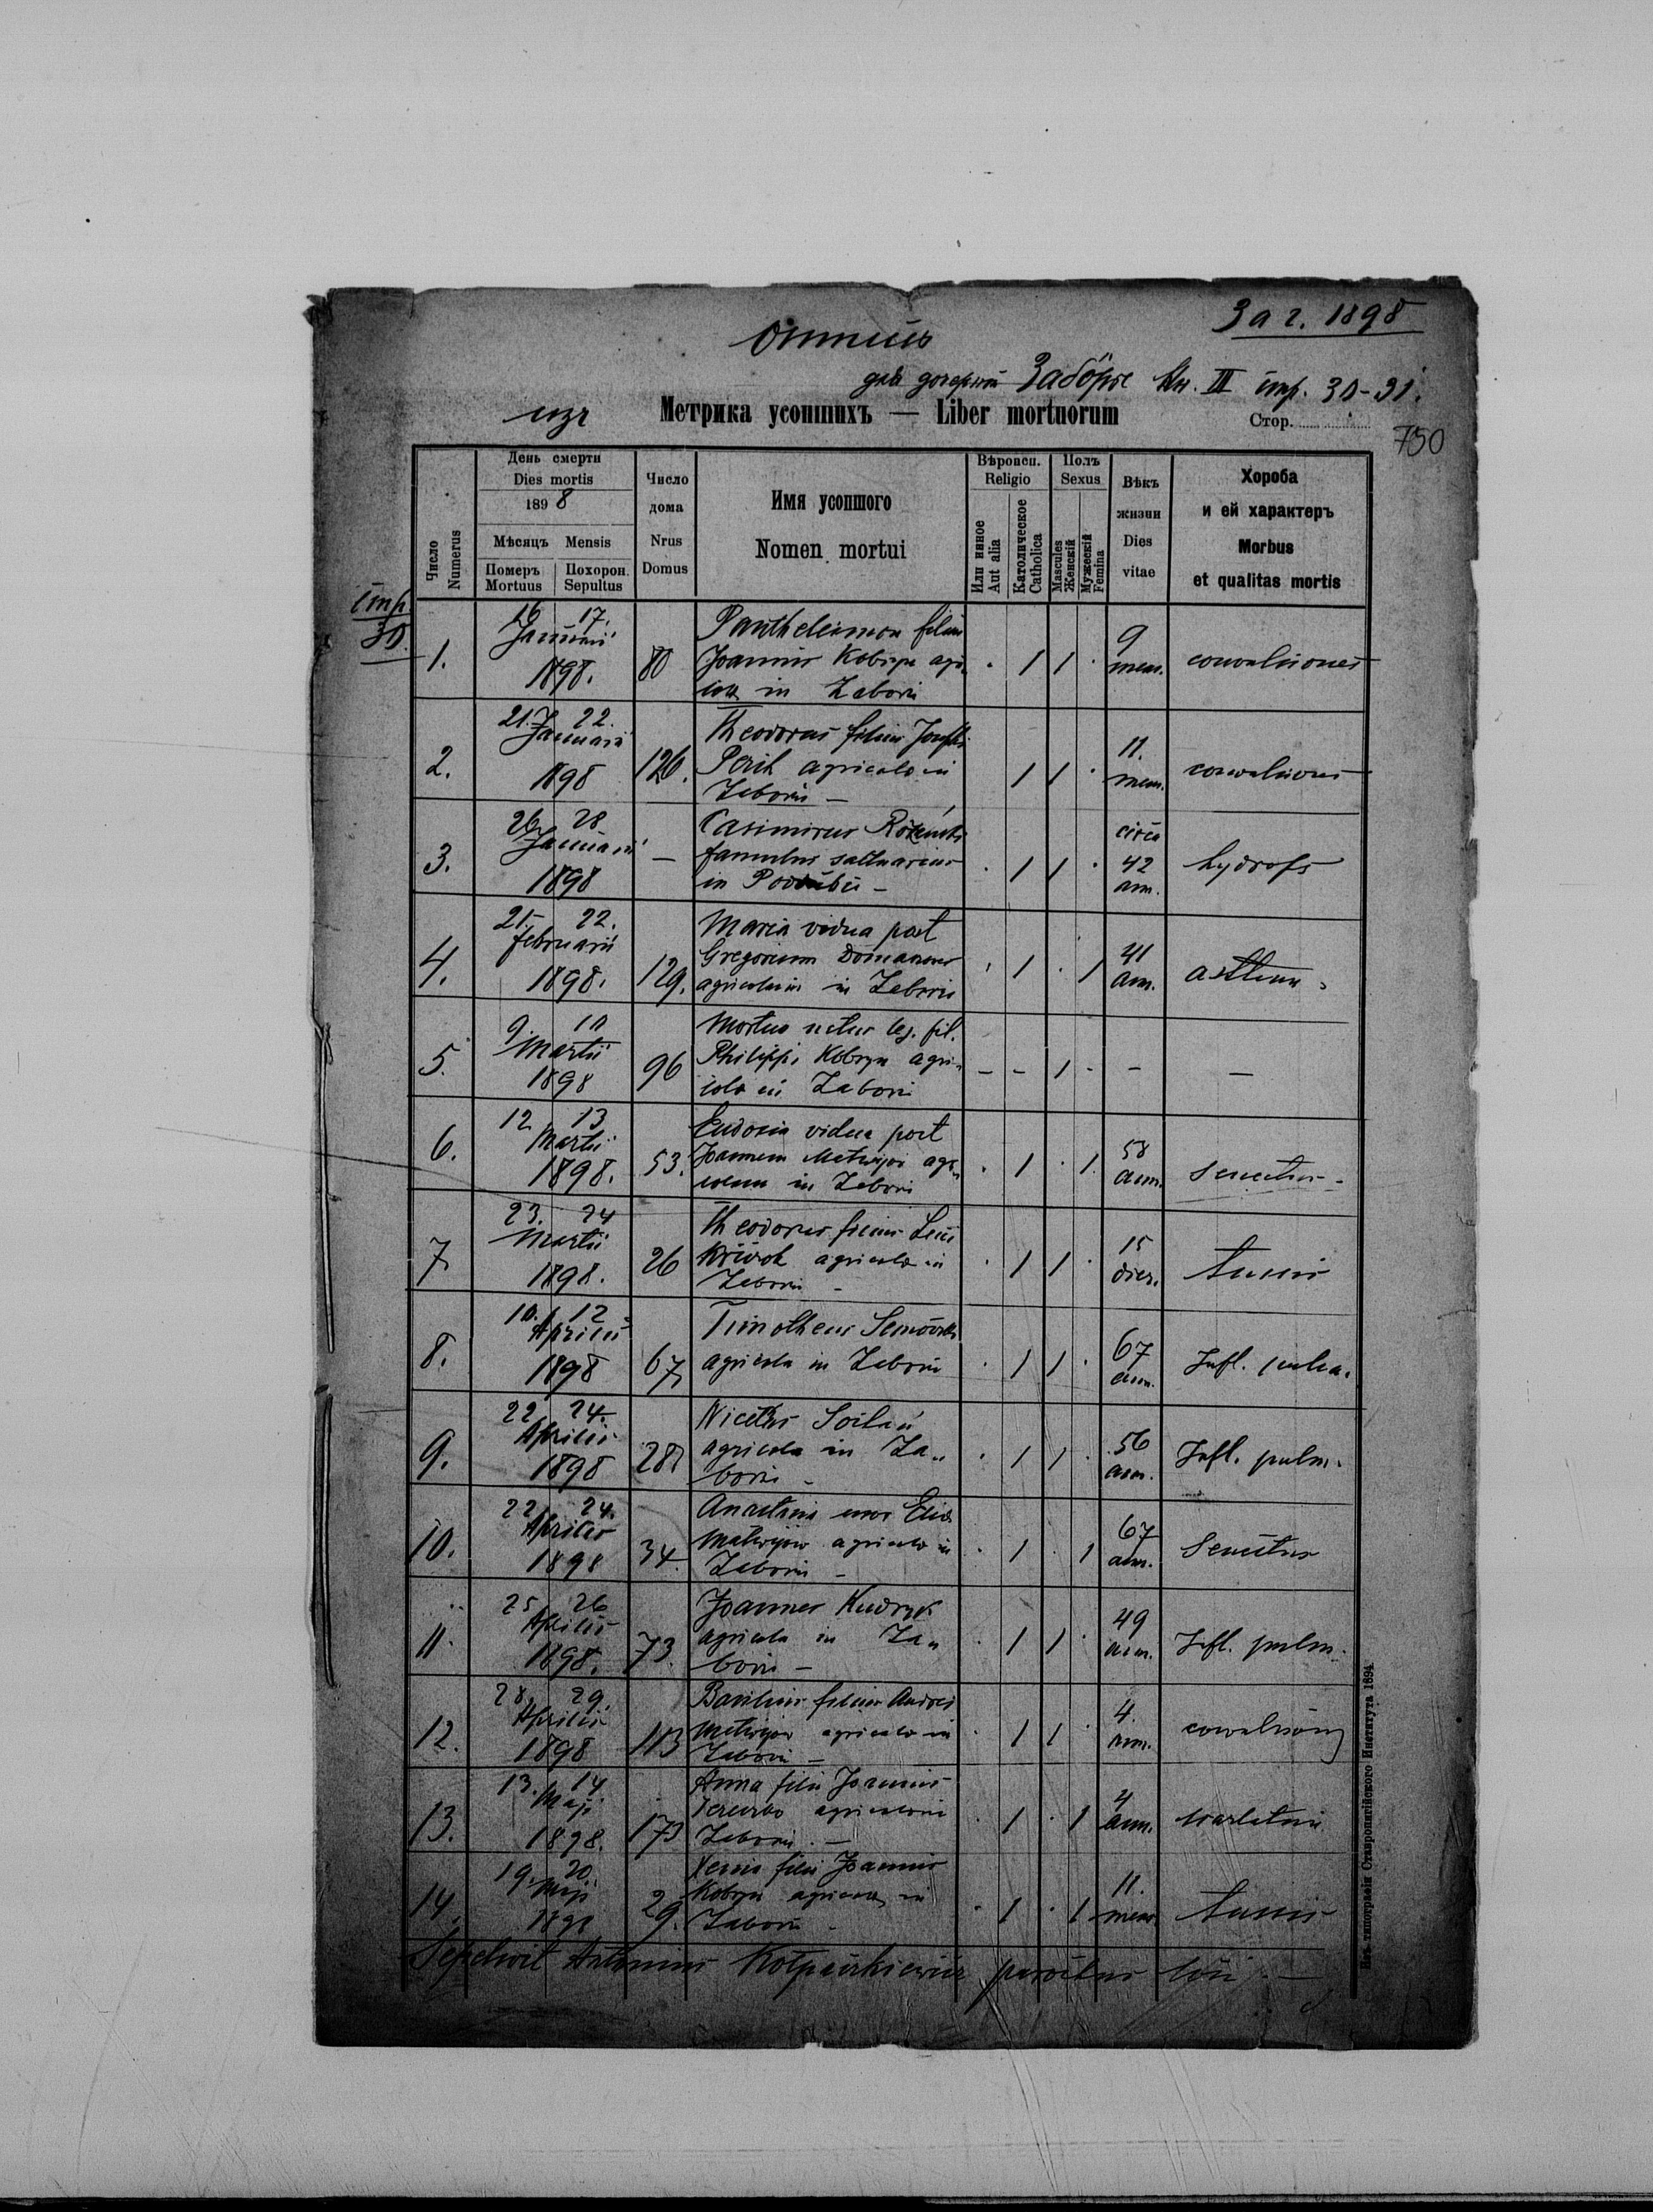 За г. 1898
для дочерной Заборье Кн. III стр. 30-31.
изъ Метрика усопшихъ — Liber mortuorum Стор.
750
Число
Numerus
День смерти
Dies mortis
1898
Мѣсяцъ Mensis
Померъ
Mortuus
Похорон.
Sepultus
Число
дома
Nrus
Domus
Имя усопшого
Nomen mortui
Вѣроисп.
Religio
Или инное
Aut alia
Католическое
Catholica
Полъ
Sexus
Mascules
Женскій
Мужескій
Femina
Вѣкъ
жизни
Dies
vitae
Хороба
и ей характеръ
Morbus
et qualitas mortis
стр.
30
1. 16 17. Januarii 1898. 80
Pantheleimon filius
Joannis Kobryn agri„
colae in Zaborie
1 1 9 men. convulsiones
2. 21. 22. Januarii 1898 126.
Theodorus filius Josephi
agricola in
Zaborie —
1 1 11. men. convulsiones
3. 26 28 Januarii 1898 —
Casimirus
famulus saltuarius
in
1 1 circa 42 ann. hydrops
4. 21. 22. februarii 1898. 129.
Maria vidua post
Gregorium
agricolam in Zaborie
1 1 41 ann. asthma
5. 9. 10 Martii 1898 96
Mortuo natus leg. fil.
Philippi Kobryn agri„
cola in Zaborie
— — 1 - — —
6. 12 13 Martii 1898. 53.
Eudoxia vidua post
Joannem Matwijow agri„
colam in Zaborie
1 1 58 ann. senectus -
7. 23. 24 Martii 1898. 26
Theodorus filius
agricola in
Zaborie -
1 1 15 dier. tussis
8. 10. 12 Aprilis 1898 67
Timotheus
agricola in Zaborie
1 1 67 ann. Infl. pulm.
9. 22 24. Aprilis 1898 28
Nicetas
agricola in Za„
borie -
1 1 56 ann. Infl. pulm.
10. 22 24. Aprilis 1898 34.
Anastasia uxor Eliae
Matwijow agricola in
Zaborie -
1 1 67 ann. Senectus
11. 25 26 Aprilis 1898. 73.
Joannes Kudryk
agricola in Za„
borie —
1 1 49 ann. Infl. pulm.
12. 28. 29. Aprilis 1898 113
Basilius filius Andrei
Matwijow agricola in
Zaborie —
1 1 4. ann. convulsiones
13. 13. 14 Maji 1898. 173
Anna filia Joannis
agricola in
Zaborie. —
1 1 4 ann. scarlatina
14. 19. 20. Maji 1898 29.
Xenia filia Joannis
Kobryn agricola in
Zaborie -
1 1 11. men. tussis
Sepelivit Antonius parochus loci. —
Изъ типографіи Ставропигійского Института 1894